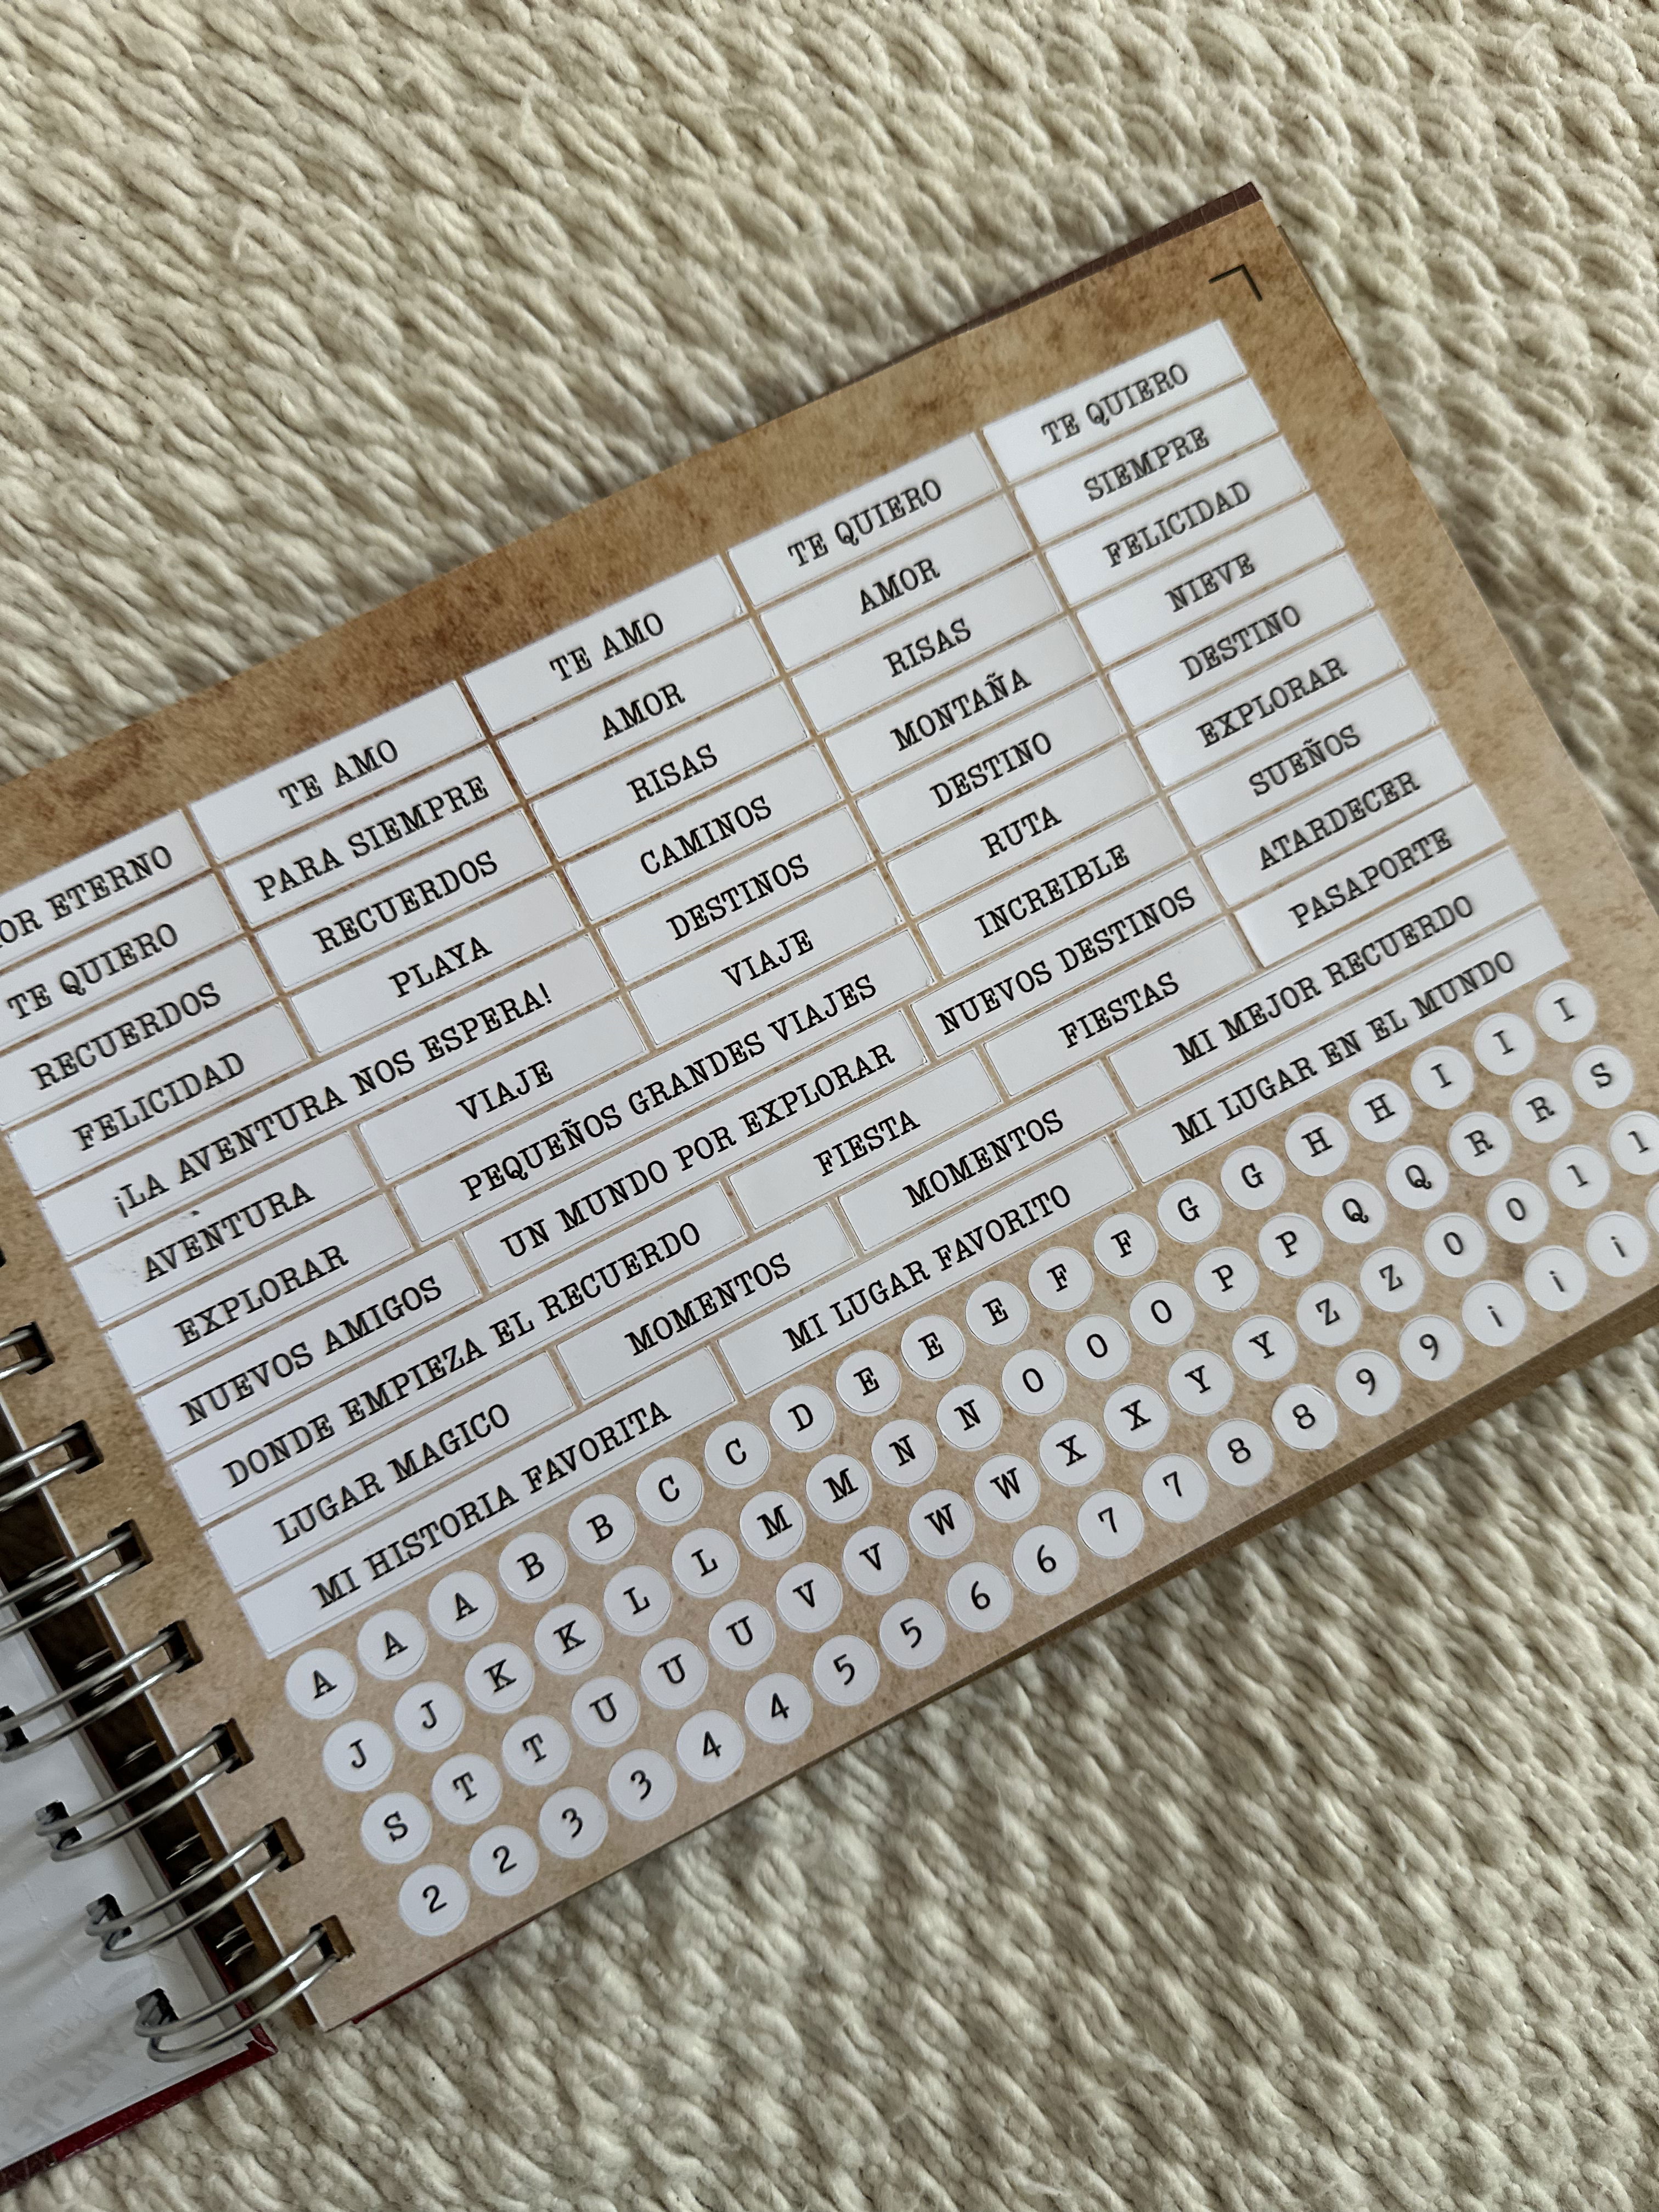 OR ETERNO TE AMO TE AMO TE QUIERO TE QUIERO
TE QUIERO PARA SIEMPRE AMOR AMOR SIEMPRE
RECUERDOS RECUERDOS RISAS RISAS FELICIDAD
FELICIDAD PLAYA CAMINOS MONTAÑA NIEVE
¡LA AVENTURA NOS ESPERA! DESTINOS DESTINO DESTINO
AVENTURA VIAJE VIAJE RUTA EXPLORAR
EXPLORAR PEQUEÑOS GRANDES VIAJES INCREIBLE SUEÑOS
NUEVOS AMIGOS UN MUNDO POR EXPLORAR NUEVOS DESTINOS ATARDECER
DONDE EMPIEZA EL RECUERDO FIESTA FIESTAS PASAPORTE
LUGAR MAGICO MOMENTOS MOMENTOS MI MEJOR RECUERDO
MI HISTORIA FAVORITA MI LUGAR FAVORITO MI LUGAR EN EL MUNDO
A A A B B C C D E E E F F G G H H I I I
J J K K L L M M N N O O O P P Q Q R R S
S T T U U U V V W W X X Y Y Z Z 0 0 1 1
2 2 3 3 4 4 5 5 6 6 7 7 8 8 9 9 ¡ ¡ ¡